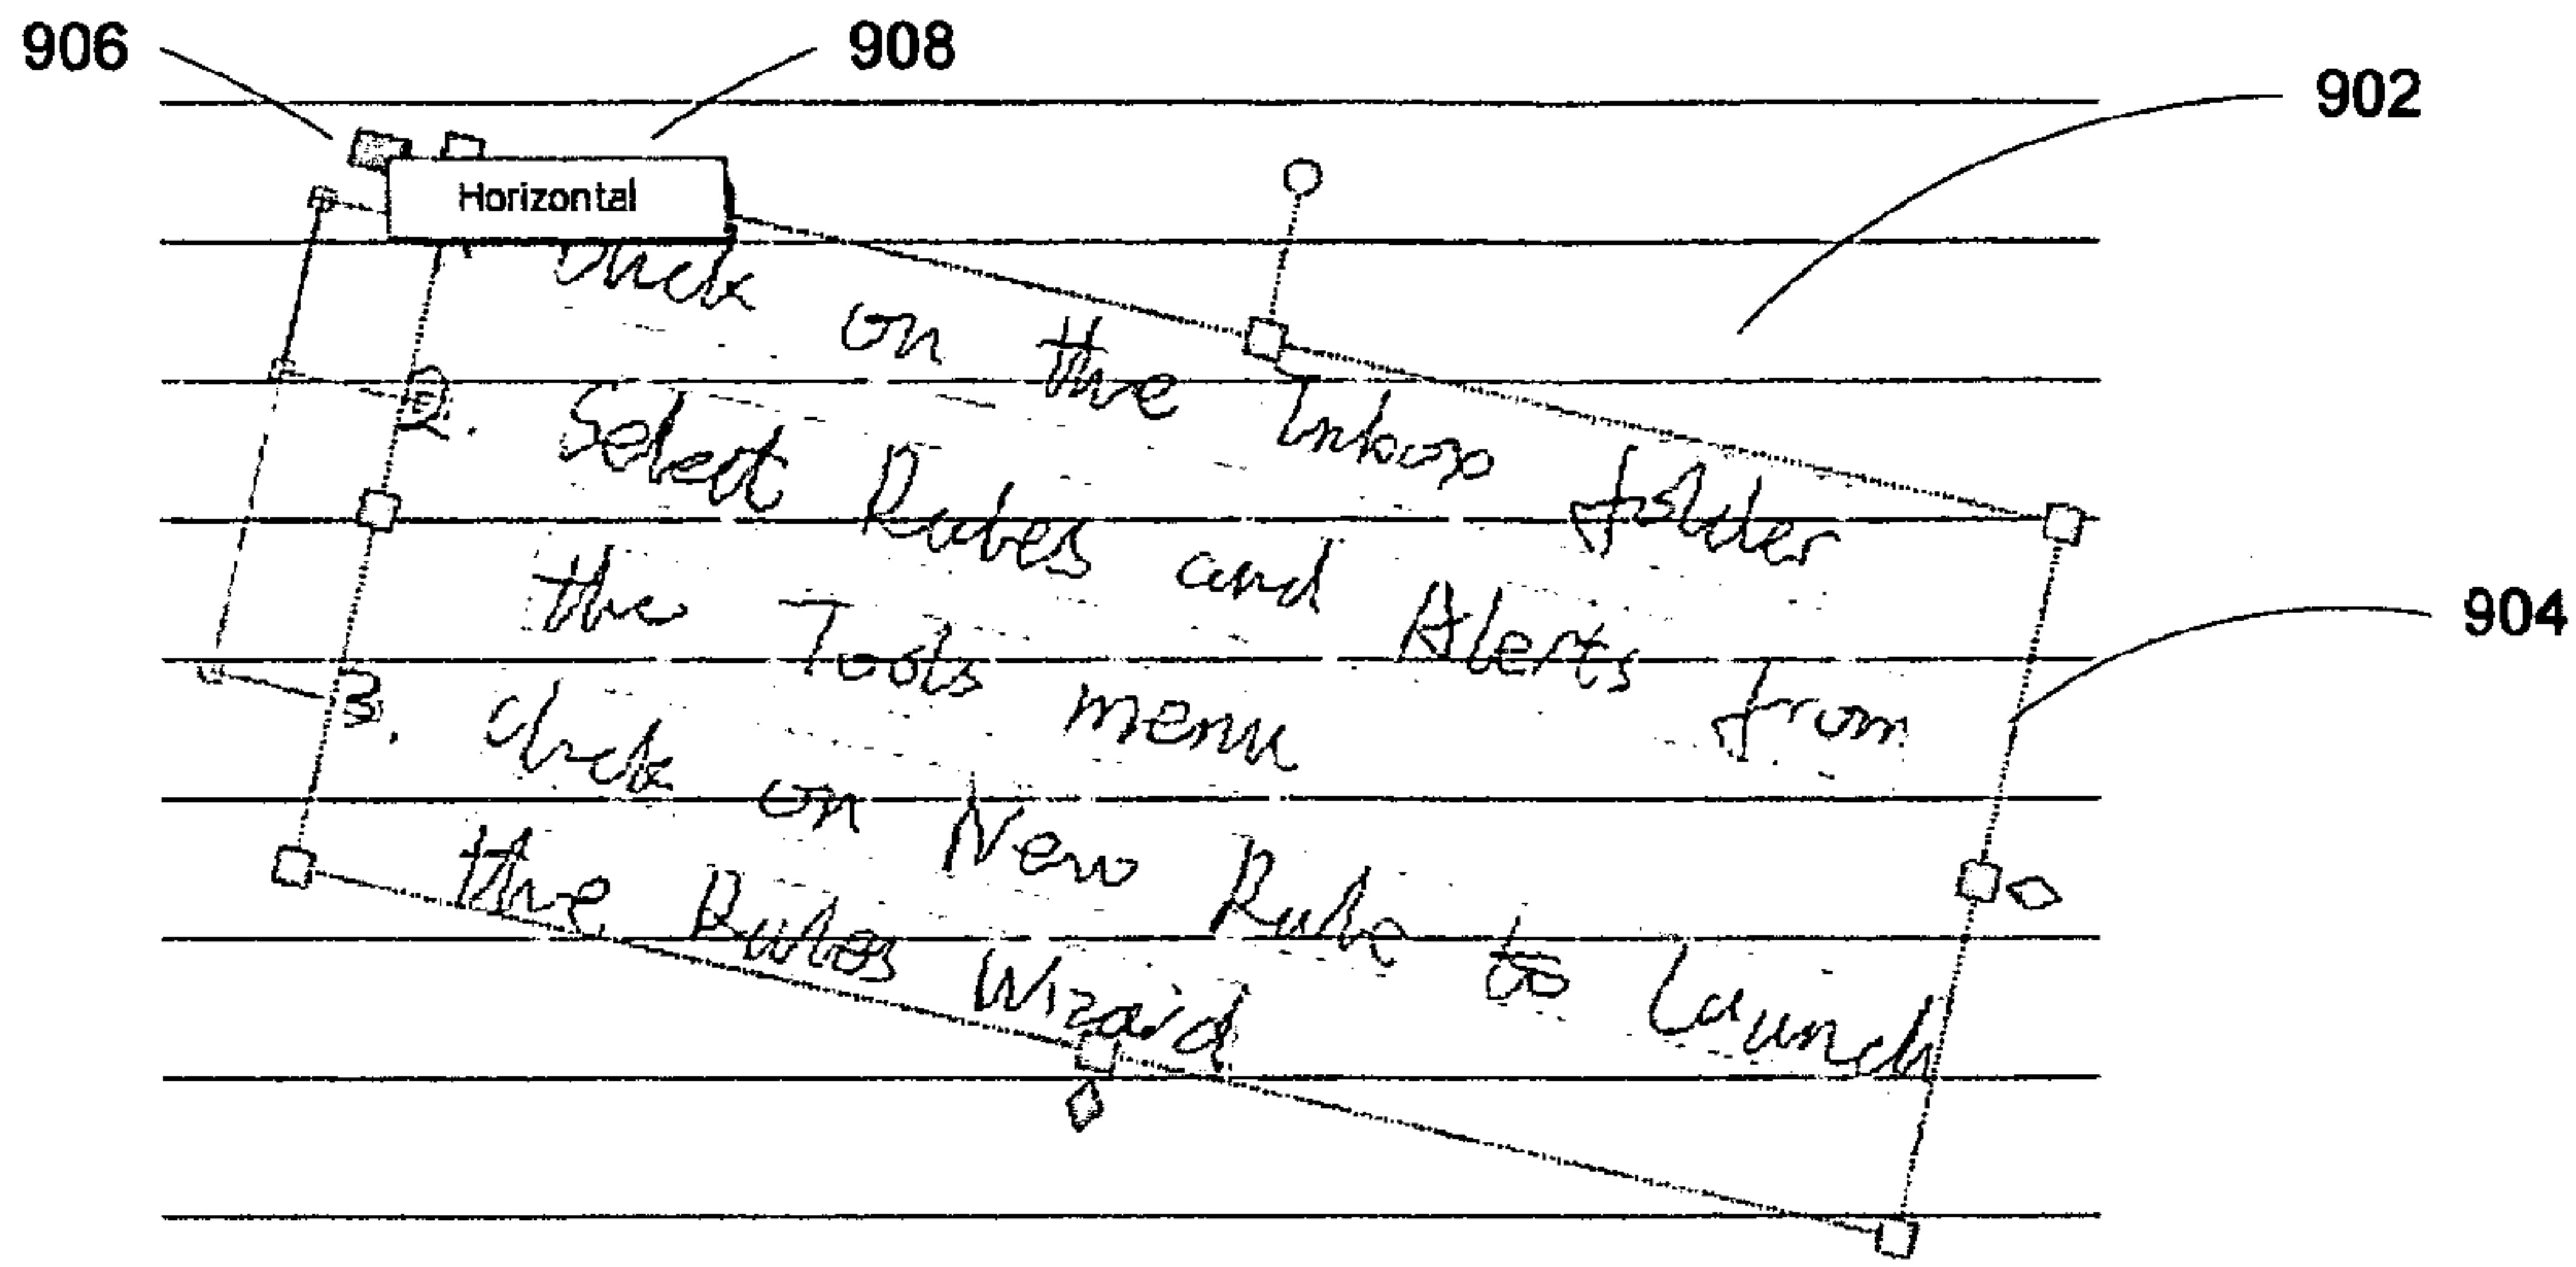 906
908
902
Horizontal
click on the Inbox folder
2. Select Rules and Alerts from
the Tools menu
904
3. click on New Rule to launch
the Rules Wizard